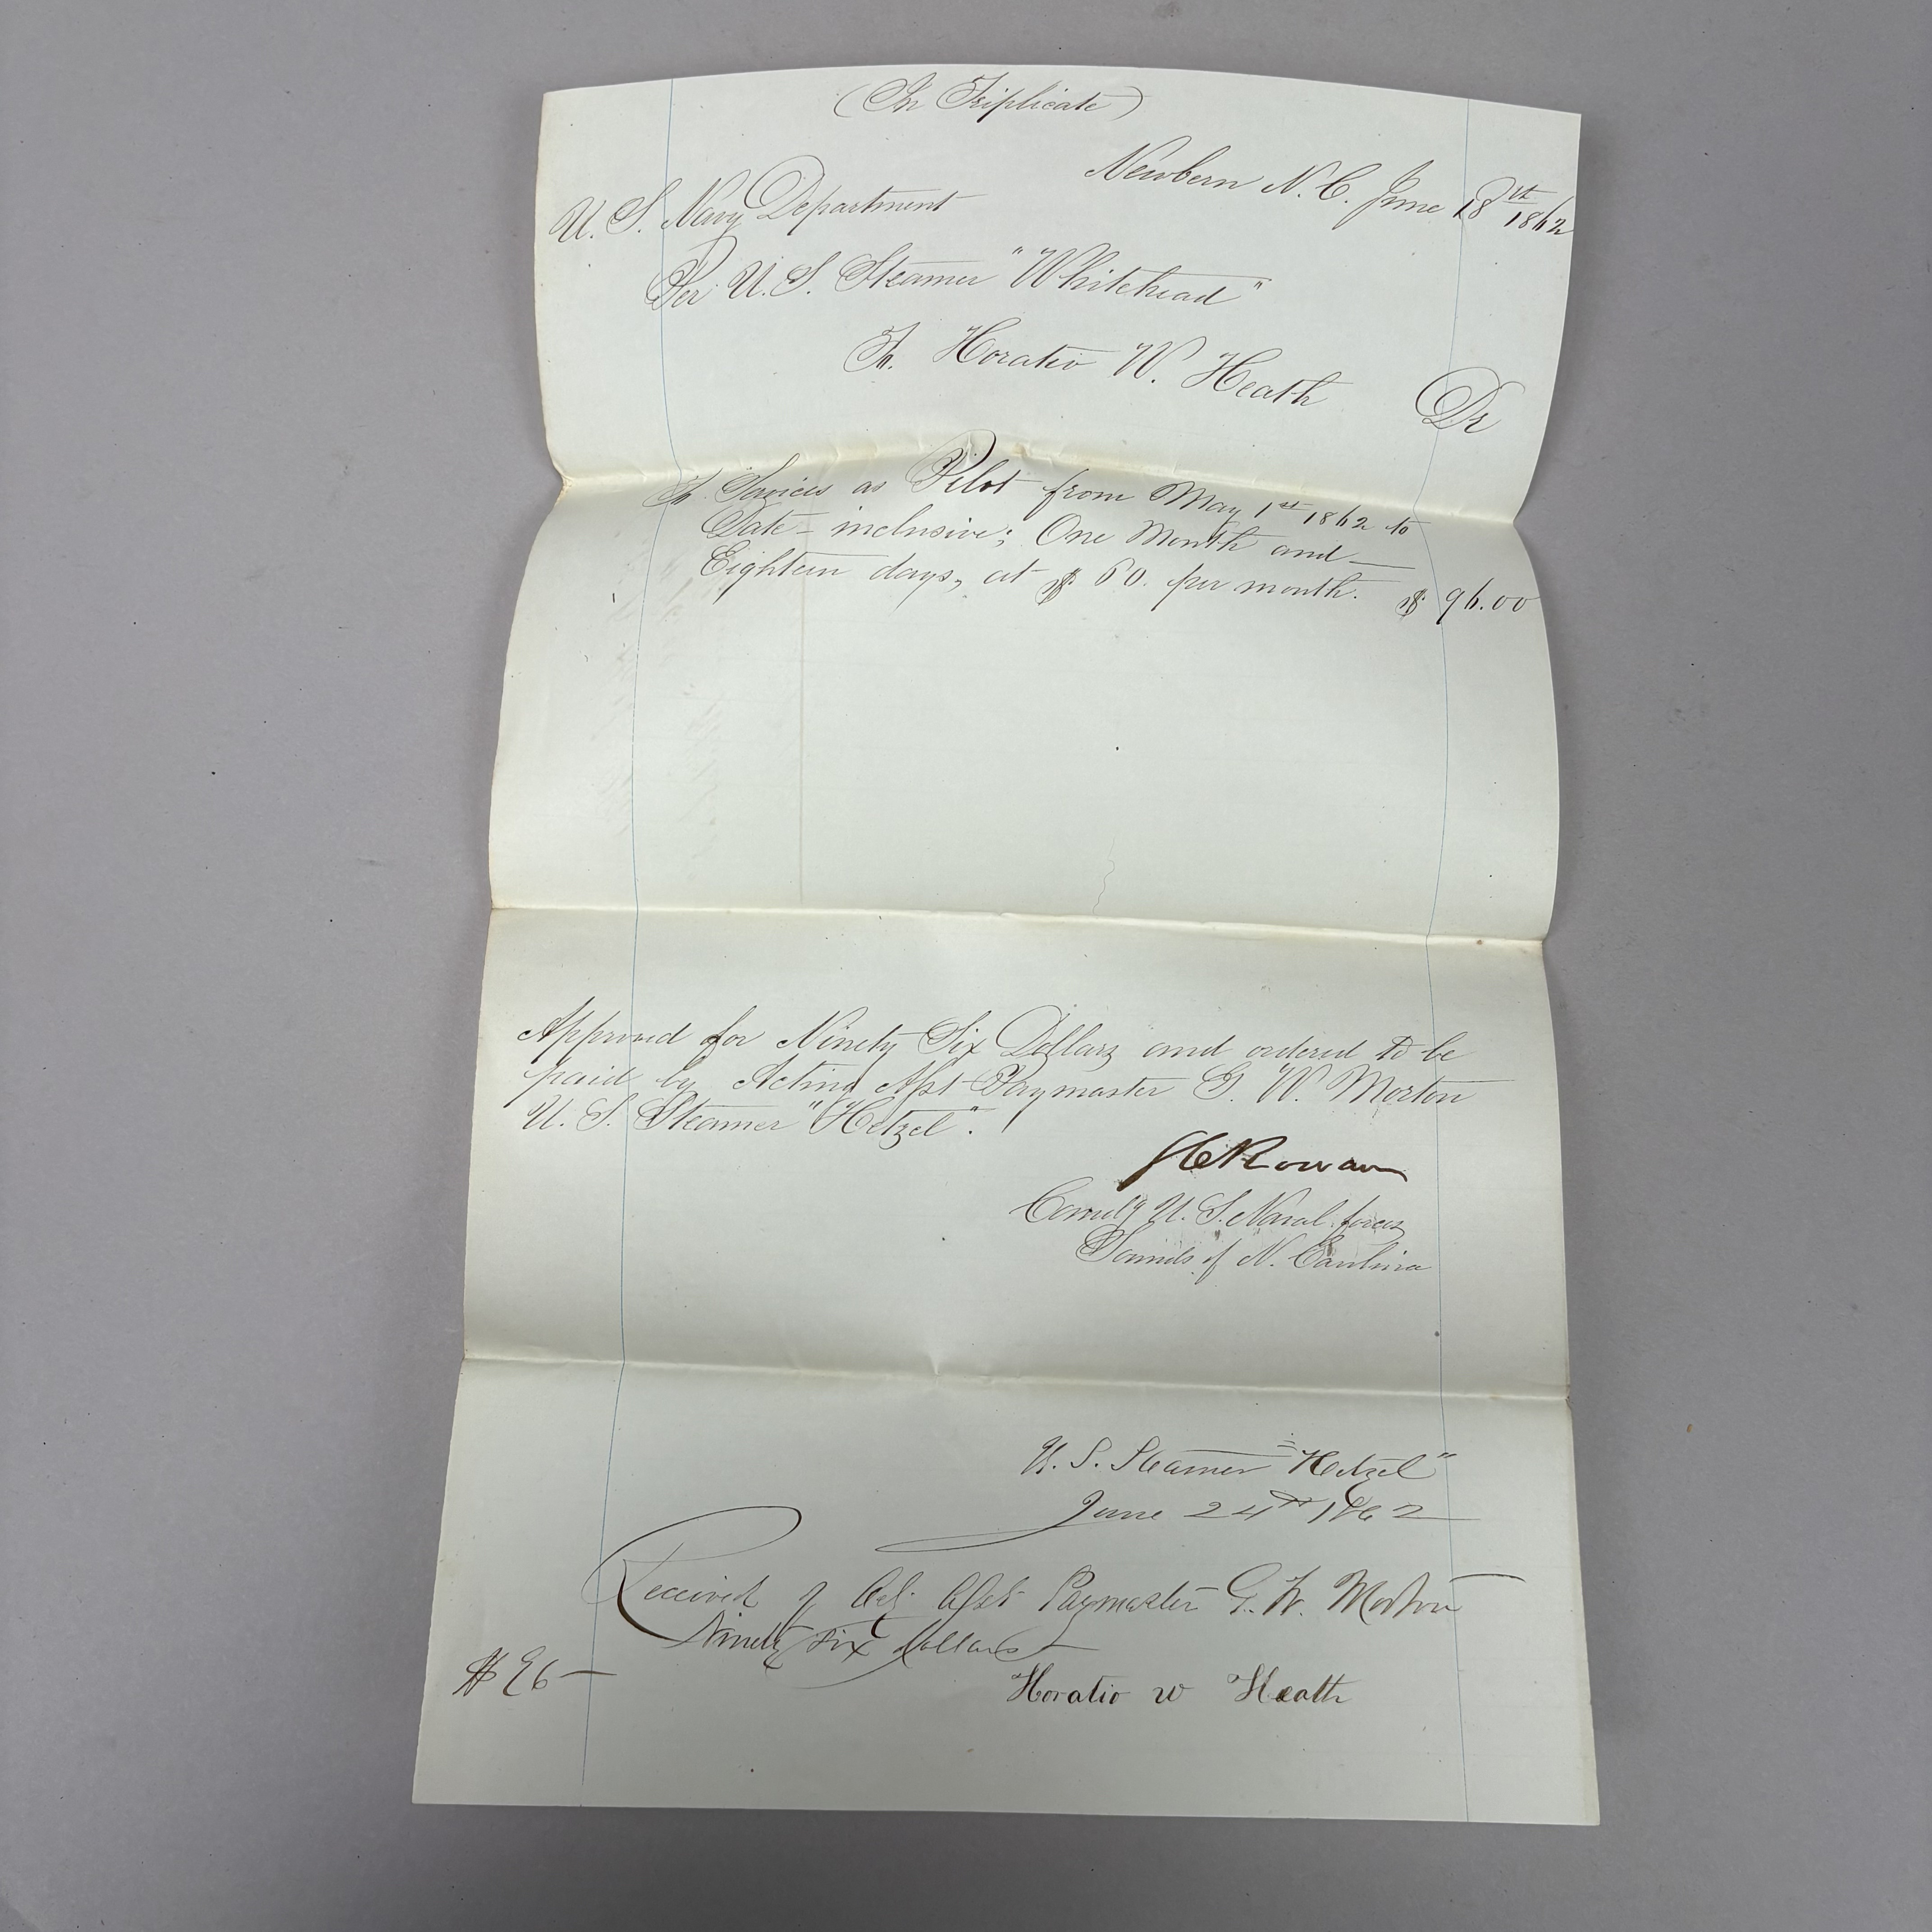 (In Triplicate)
Newbern N. C. June 18th 1862
U. S. Navy Department
Per U. S. Steamer "Whitehead"
To Horatio W. Heath Dr
To Services as Pilot from May 1st 1862 to
Date - inclusive; One Month and
Eighteen days, at $60. per month. $96.00
Approved for Ninety Six Dollars and ordered to be
paid by Acting Asst Paymaster G. W. Morton
U. S. Steamer "Hetzel".
S C Rowan
Comdg U. S. Naval forces
Sounds of N. Carolina
U. S. Steamer "Hetzel"
June 24th 1862
Received of Actg Asst Paymaster G. W. Morton
Ninety six dollars
$96 —
Horatio w Heath